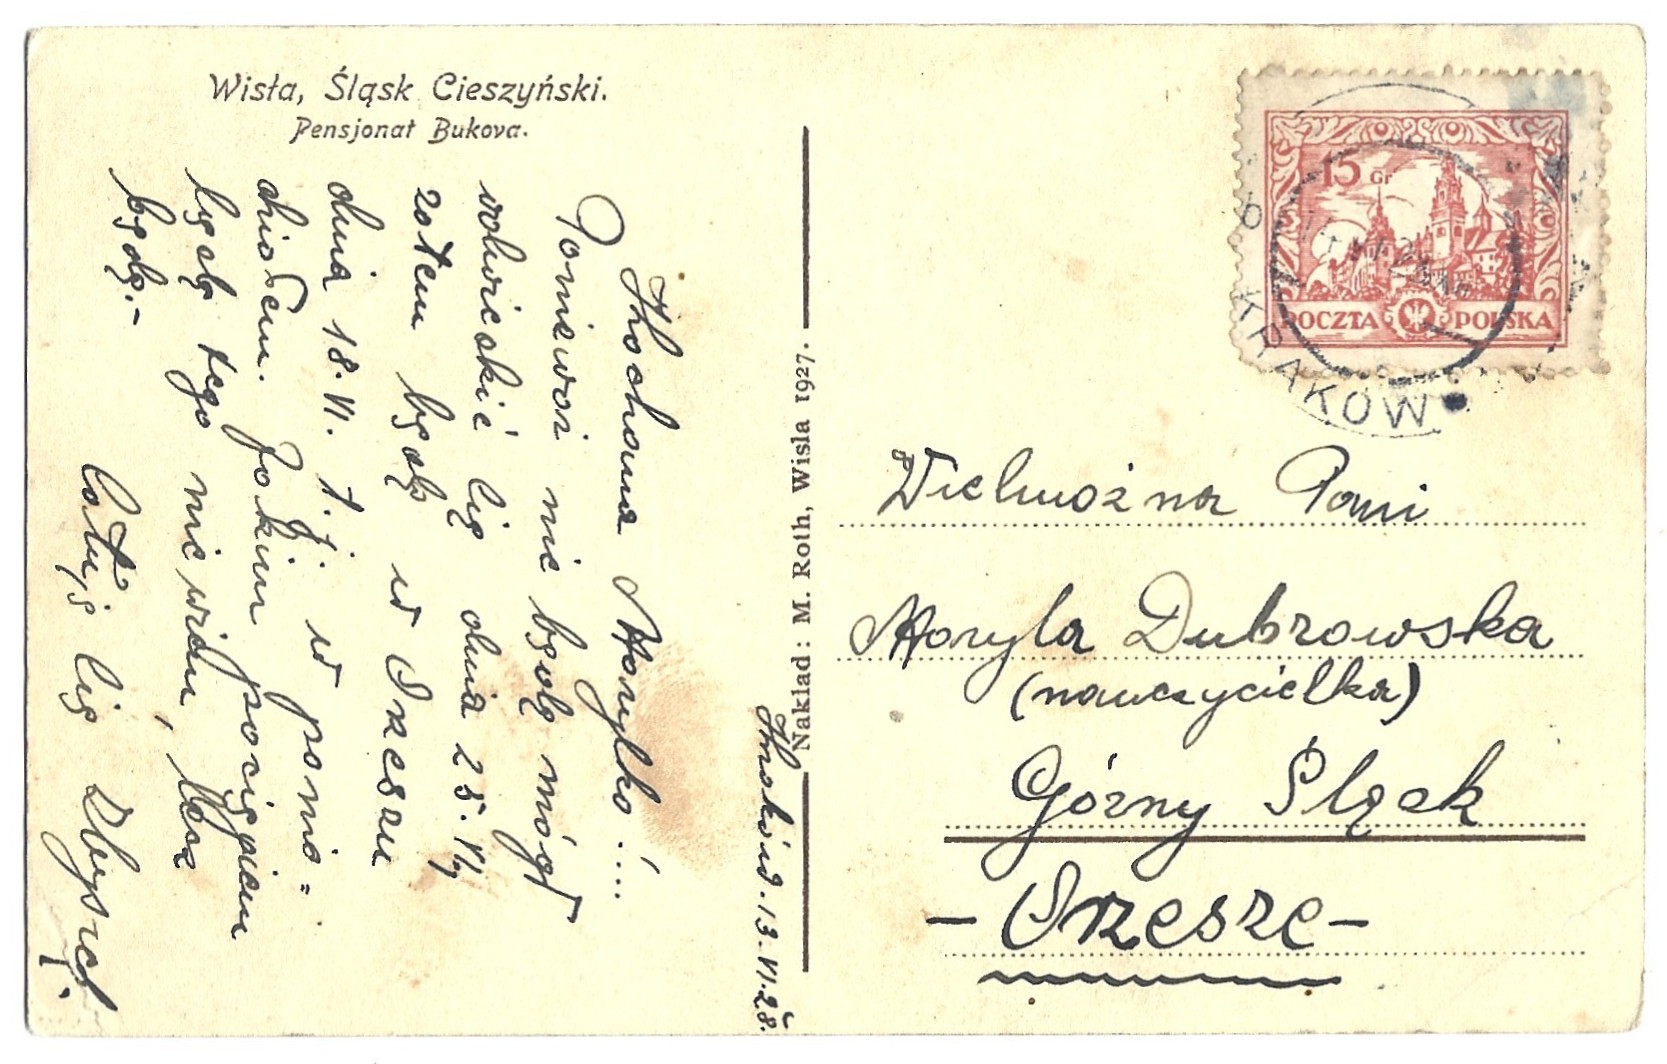 Wisła, Śląsk Cieszyński.
Pensjonat Bukova.
Kochana Marylko!...
Ponieważ nie będę mógł
odwiedzić Cię dnia 25.VI,
zatem będę w Orzeszu
dnia 18.VI. t.j. w ponie=
działek. Jakim pociągiem
będę tego nie wiem, lecz
będę.-
Całuję Cię Zbyszek
Kraków d. 13.VI.28.
Nakład: M. Roth, Wisla 1927.
15 Gr
POCZTA POLSKA
KRAKÓW
Wielmożna Pani
Maryla Dubrowska
(nauczycielka)
Górny Śląsk
- Orzesze -